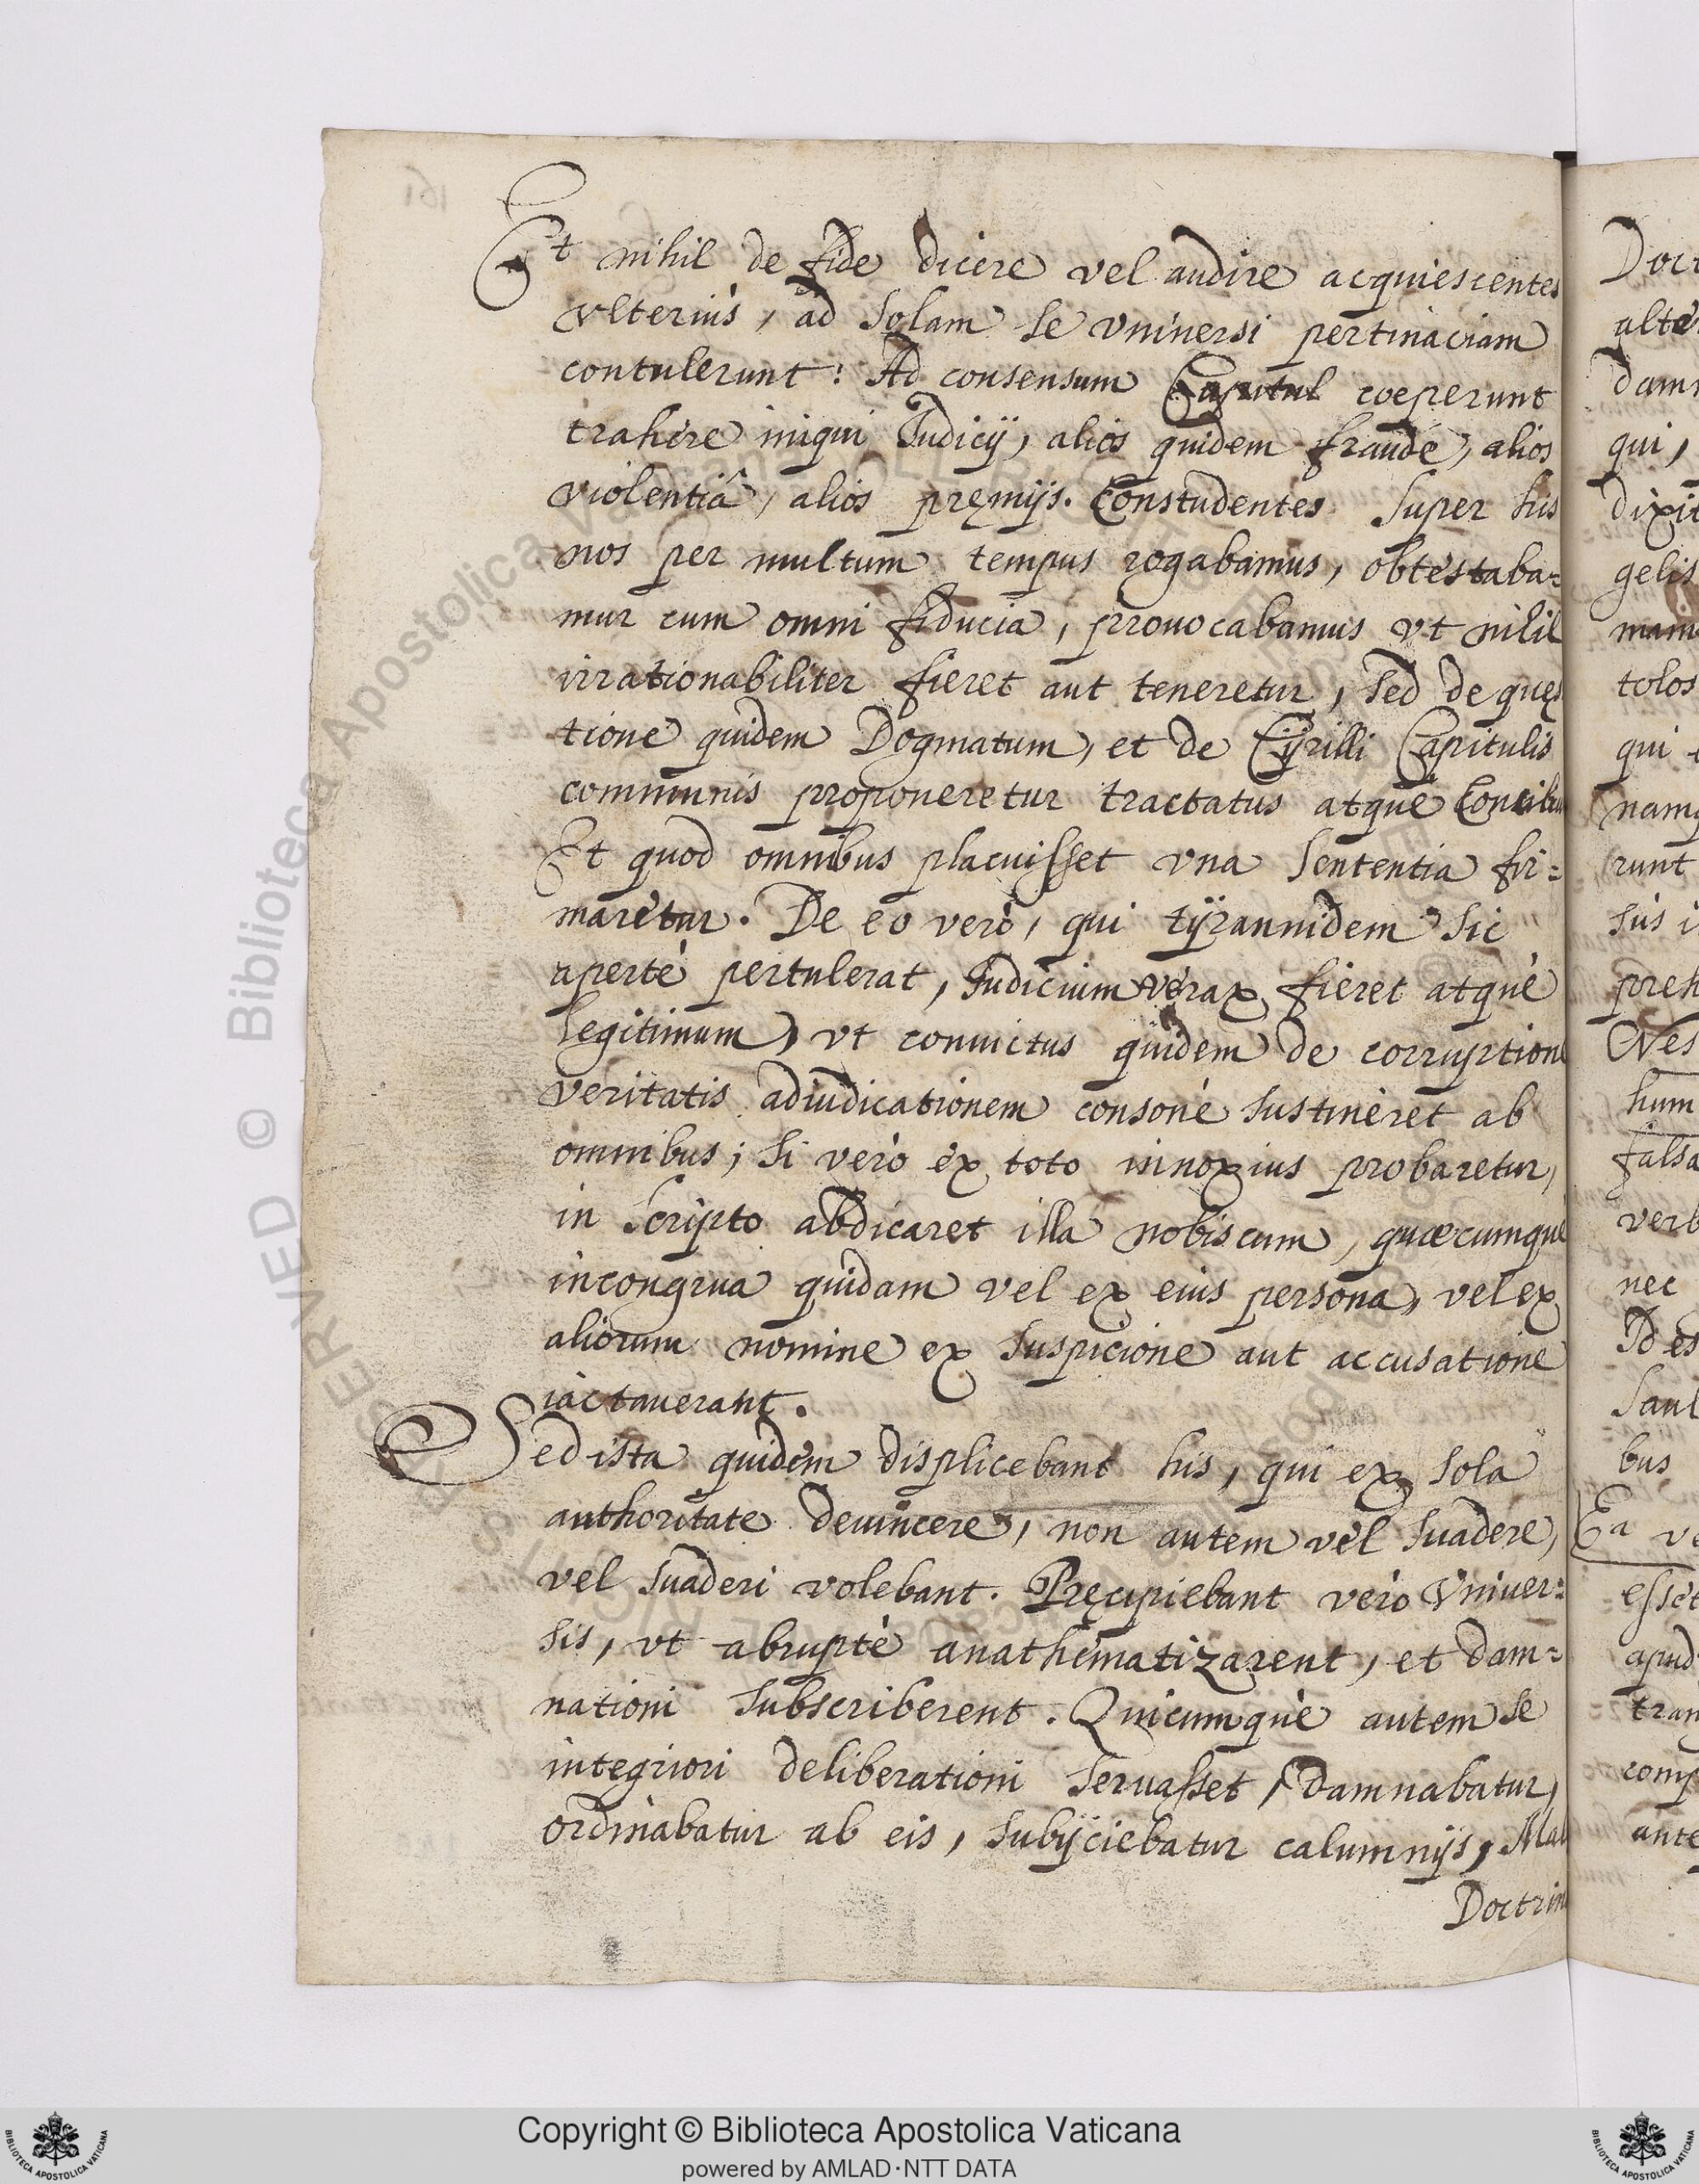 Et nihil de fide dicere vel audire acquiescentes
vlteriùs, ad solam se vniuersi pertinaciam
contulerunt: Ad consensum Capitul coeperunt
trahere iniqui Iudicij, alios quidem fraude, alios
violentiâ, alios pręmijs. Constudentes super his
nos per multum tempus rogabamus, obtestaba=
mur cum omni fiducia, prouocabamus vt nihil
irrationabiliter fieret aut teneretur, sed de ques
tione quidem Dogmatum, et de Cÿrilli Capitulis
communis proponeretur tractatus atque Concilium
Et quod omnibus placuisset vna sententia fir=
maretur. De eo verò, qui tÿrannidem sic
apertè pertulerat, Iudicium verax fieret atquè
legitimum, vt conuictus quidem de corruptione
veritatis adiudicationem consonè sustineret ab
omnibus; si verò ex toto innoxius probaretur,
in scripto abdicaret illa nobiscum, quæcumque
incongrua quidam vel ex eius persona, vel ex
aliorum nomine ex suspicione aut accusatione
iactauerant.
Sed ista quidem displicebant his, qui ex sola
authoritate deuincere, non autem vel suadere,
vel suaderi volebant. Pręcipiebant verò Vniuer=
sis, vt abruptè anathematizarent, et dam=
nationi subscriberent. Quicumquè autem se
integriori deliberationi seruasset, damnabatur,
ordinabatur ab eis, subijciebatur calumnijs, Mal
Doctrin
161
Doct
alte
damn
qui,
dixit
gelis
mam
tolos
qui
namq
runt
sus i
preh
Nes
hum
falsa
verb
nec
Id es
Saul
bus
Ea ve
esset
apud
tran
comp
ante
RESERVED © Biblioteca Apostolica Vaticana
Copyright © Biblioteca Apostolica Vaticana
powered by AMLAD·NTT DATA
BIBLIOTECA APOSTOLICA VATICANA
BIBLIOTECA APOSTOLICA VATICANA